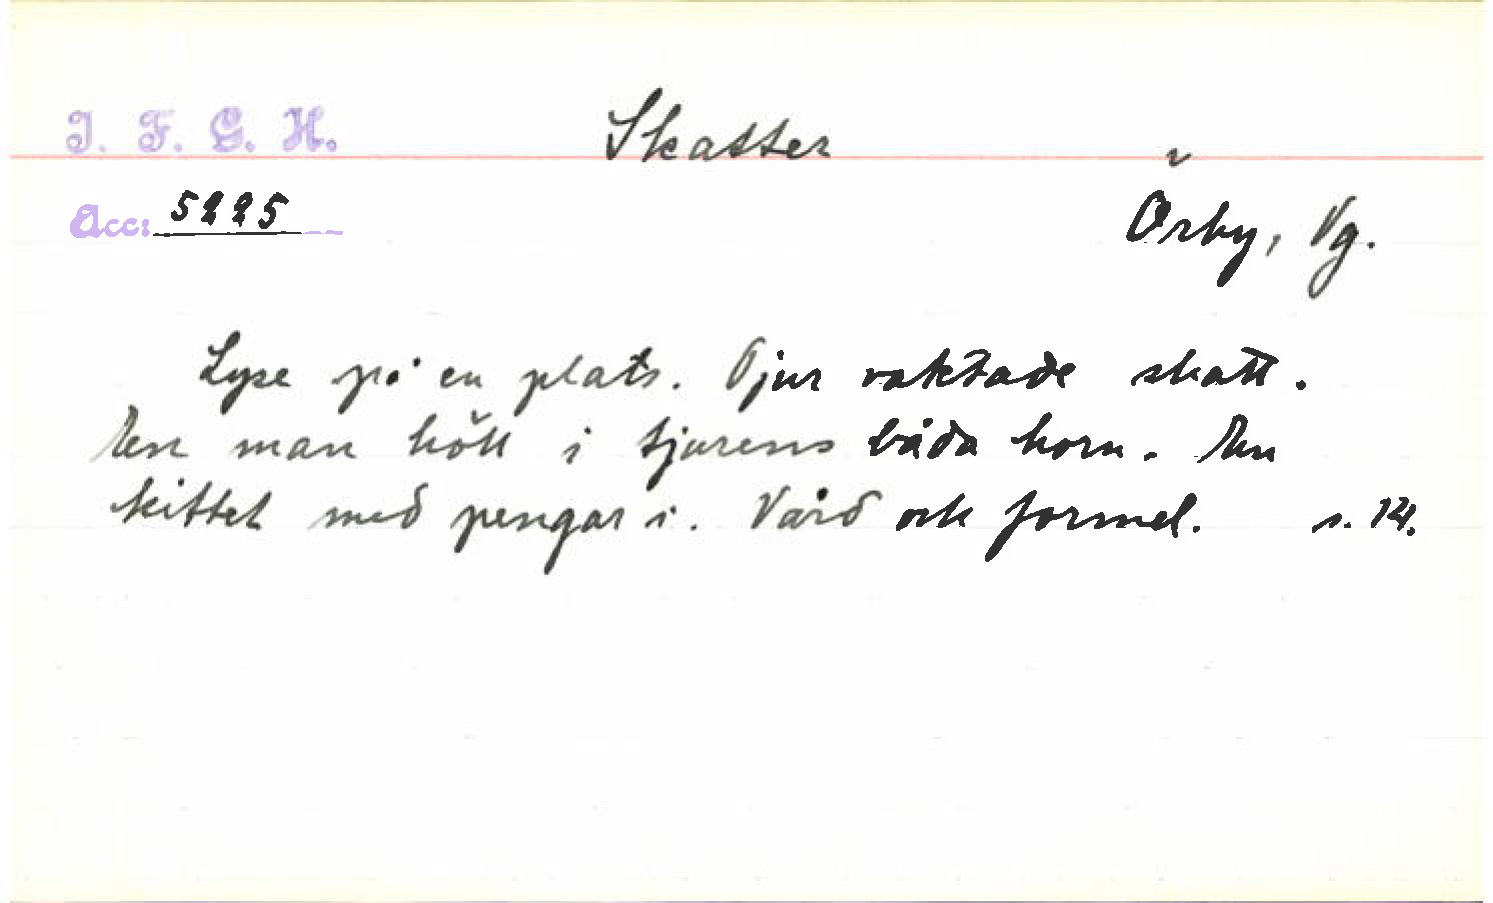 I. F. G. H.
Skatter
Acc: 5225
Örby, Vg.
Lyse på en plats. Tjur vaktade skatt.
En man höll i tjurens båda horn. En
kittel med pengar i. Vård och formel. s. 14.